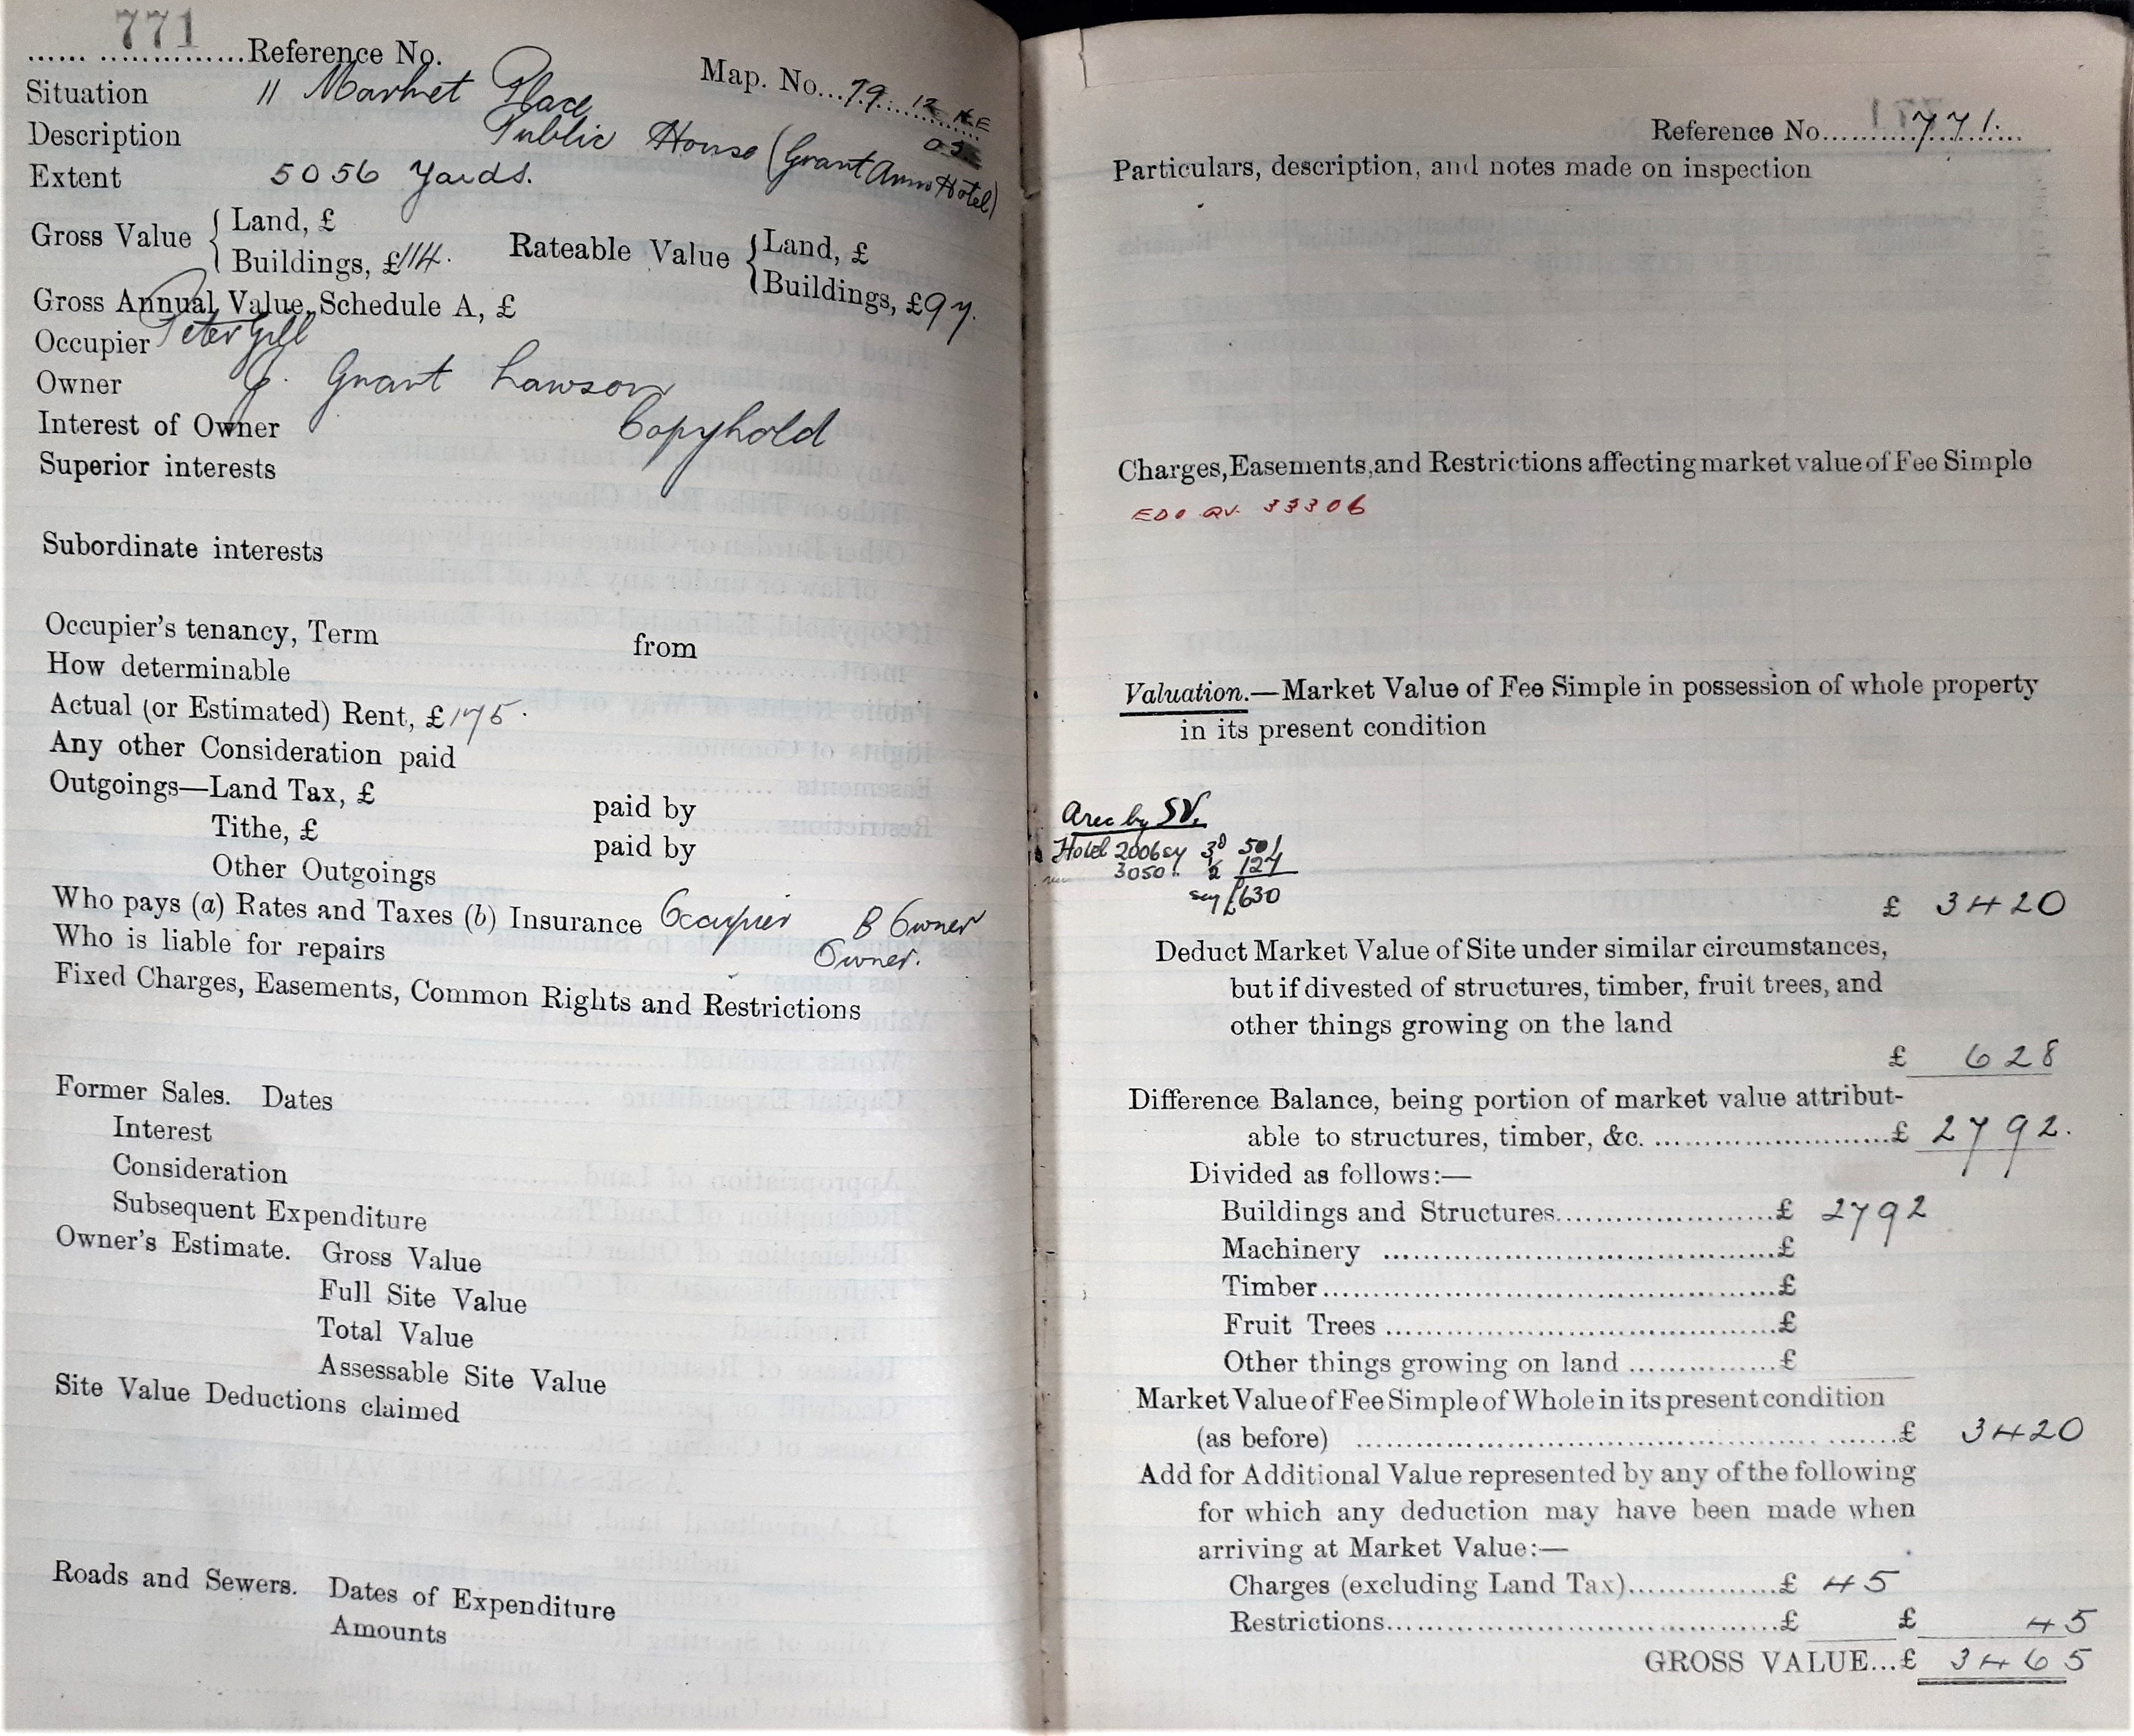 771
...... ..............Reference No.
Map. No...79. 12 NE
Situation 11 Market Place
Description Public House (Grant Arms Hotel)
Extent 5056 Yards.
Gross Value { Land, £
Buildings, £114.
Rateable Value { Land, £
Buildings, £97.
Gross Annual Value, Schedule A, £
Occupier Peter Gill
Owner J. Grant Lawson
Interest of Owner Copyhold
Superior interests
Subordinate interests
Occupier's tenancy, Term from
How determinable
Actual (or Estimated) Rent, £175.
Any other Consideration paid
Outgoings—Land Tax, £ paid by
Tithe, £ paid by
Other Outgoings
Who pays (a) Rates and Taxes (b) Insurance Occupier B Owner
Who is liable for repairs Owner.
Fixed Charges, Easements, Common Rights and Restrictions
Former Sales. Dates
Interest
Consideration
Subsequent Expenditure
Owner's Estimate. Gross Value
Full Site Value
Total Value
Assessable Site Value
Site Value Deductions claimed
Roads and Sewers. Dates of Expenditure
Amounts
Reference No..........771......
Particulars, description, and notes made on inspection
Charges, Easements, and Restrictions affecting market value of Fee Simple
EDO RV. 33306
Valuation.—Market Value of Fee Simple in possession of whole property
in its present condition
Area by SV.
Hotel 2006 sy 3d 501
3050 " 1/2 127
say £630
£ 3420
Deduct Market Value of Site under similar circumstances,
but if divested of structures, timber, fruit trees, and
other things growing on the land
£ 628
Difference Balance, being portion of market value attribut-
able to structures, timber, &c. ........................£ 2792.
Divided as follows:—
Buildings and Structures.......................£ 2792
Machinery .........................................£
Timber................................................£
Fruit Trees .........................................£
Other things growing on land ...............£
Market Value of Fee Simple of Whole in its present condition
(as before) ........................................................£ 3420
Add for Additional Value represented by any of the following
for which any deduction may have been made when
arriving at Market Value:—
Charges (excluding Land Tax)...............£ 45
Restrictions.........................................£ £ 45
GROSS VALUE...£ 3465